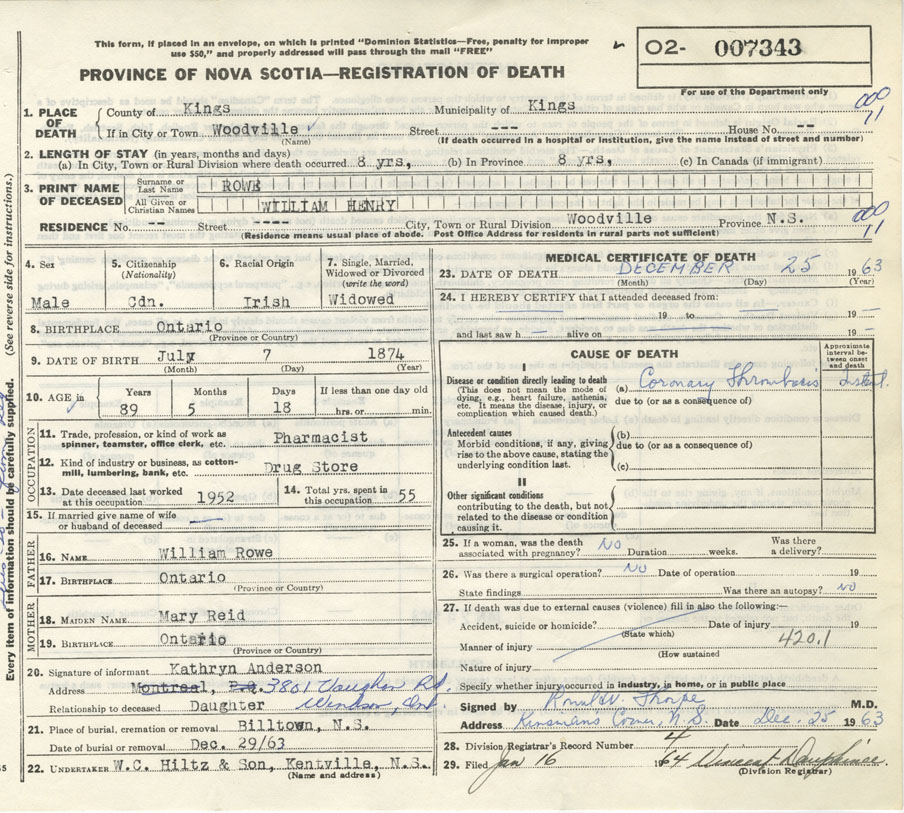 This form, if placed in an envelope, on which is printed "Dominion Statistics—Free, penalty for improper
use $50," and properly addressed will pass through the mail "FREE"
PROVINCE OF NOVA SCOTIA—REGISTRATION OF DEATH
O2- 007343
For use of the Department only
1. PLACE OF DEATH
County of Kings Municipality of Kings
000
71
If in City or Town Woodville Street --- House No. --
(Name) (If death occurred in a hospital or institution, give the name instead of street and number)
2. LENGTH OF STAY (in years, months and days)
(a) In City, Town or Rural Division where death occurred 8 yrs, (b) In Province 8 yrs, (c) In Canada (if immigrant)
3. PRINT NAME OF DECEASED
Surname or Last Name ROWE
All Given or Christian Names WILLIAM HENRY
000
11
RESIDENCE No. -- Street ---- City, Town or Rural Division Woodville Province N.S.
(Residence means usual place of abode. Post Office Address for residents in rural parts not sufficient)
4. Sex
Male
5. Citizenship (Nationality)
Cdn.
6. Racial Origin
Irish
7. Single, Married, Widowed or Divorced (write the word)
Widowed
8. BIRTHPLACE Ontario
(Province or Country)
9. DATE OF BIRTH July 7 1874
(Month) (Day) (Year)
10. AGE in
Years Months Days If less than one day old
89 5 18 hrs. or min.
OCCUPATION
11. Trade, profession, or kind of work as spinner, teamster, office clerk, etc. Pharmacist
12. Kind of industry or business, as cotton-mill, lumbering, bank, etc. Drug Store
13. Date deceased last worked at this occupation 1952
14. Total yrs. spent in this occupation 55
15. If married give name of wife or husband of deceased —
FATHER
16. NAME William Rowe
17. BIRTHPLACE Ontario
(Province or Country)
MOTHER
18. MAIDEN NAME Mary Reid
19. BIRTHPLACE Ontario
(Province or Country)
20. Signature of informant Kathryn Anderson
Address Montreal, P.Q. 3801 Vaughn Rd.
Relationship to deceased Daughter Windsor, Ont.
21. Place of burial, cremation or removal Billtown, N.S.
Date of burial or removal Dec. 29/63
22. UNDERTAKER W.C. Hiltz & Son, Kentville, N.S.
(Name and address)
MEDICAL CERTIFICATE OF DEATH
23. DATE OF DEATH DECEMBER 25 1963
(Month) (Day) (Year)
24. I HEREBY CERTIFY that I attended deceased from:
— 19 to — 19 —
and last saw h — alive on — 19 —
CAUSE OF DEATH
Approximate interval between onset and death
I
Disease or condition directly leading to death
(This does not mean the mode of dying, e.g., heart failure, asthenia, etc. It means the disease, injury, or complication which caused death.)
(a) Coronary Thrombosis instant.
due to (or as a consequence of)
Antecedent causes
Morbid conditions, if any, giving rise to the above cause, stating the underlying condition last.
(b)
due to (or as a consequence of)
(c)
II
Other significant conditions
contributing to the death, but not related to the disease or condition causing it.
25. If a woman, was the death associated with pregnancy? NO Duration weeks. Was there a delivery?
26. Was there a surgical operation? NO Date of operation 19
State findings Was there an autopsy? NO
27. If death was due to external causes (violence) fill in also the following:—
Accident, suicide or homicide? Date of injury 19
(State which)
Manner of injury 420.1
(How sustained
Nature of injury
Specify whether injury occurred in industry, in home, or in public place
Signed by Ronald W. Thorpe M.D.
Address Kinsman's Corner, N.S. Date Dec. 25 1963
28. Division Registrar's Record Number 4
29. Filed Jan 16 1964 Vincent Dauphinee.
(Division Registrar)
Every item of information should be carefully supplied. (See reverse side for instructions.)